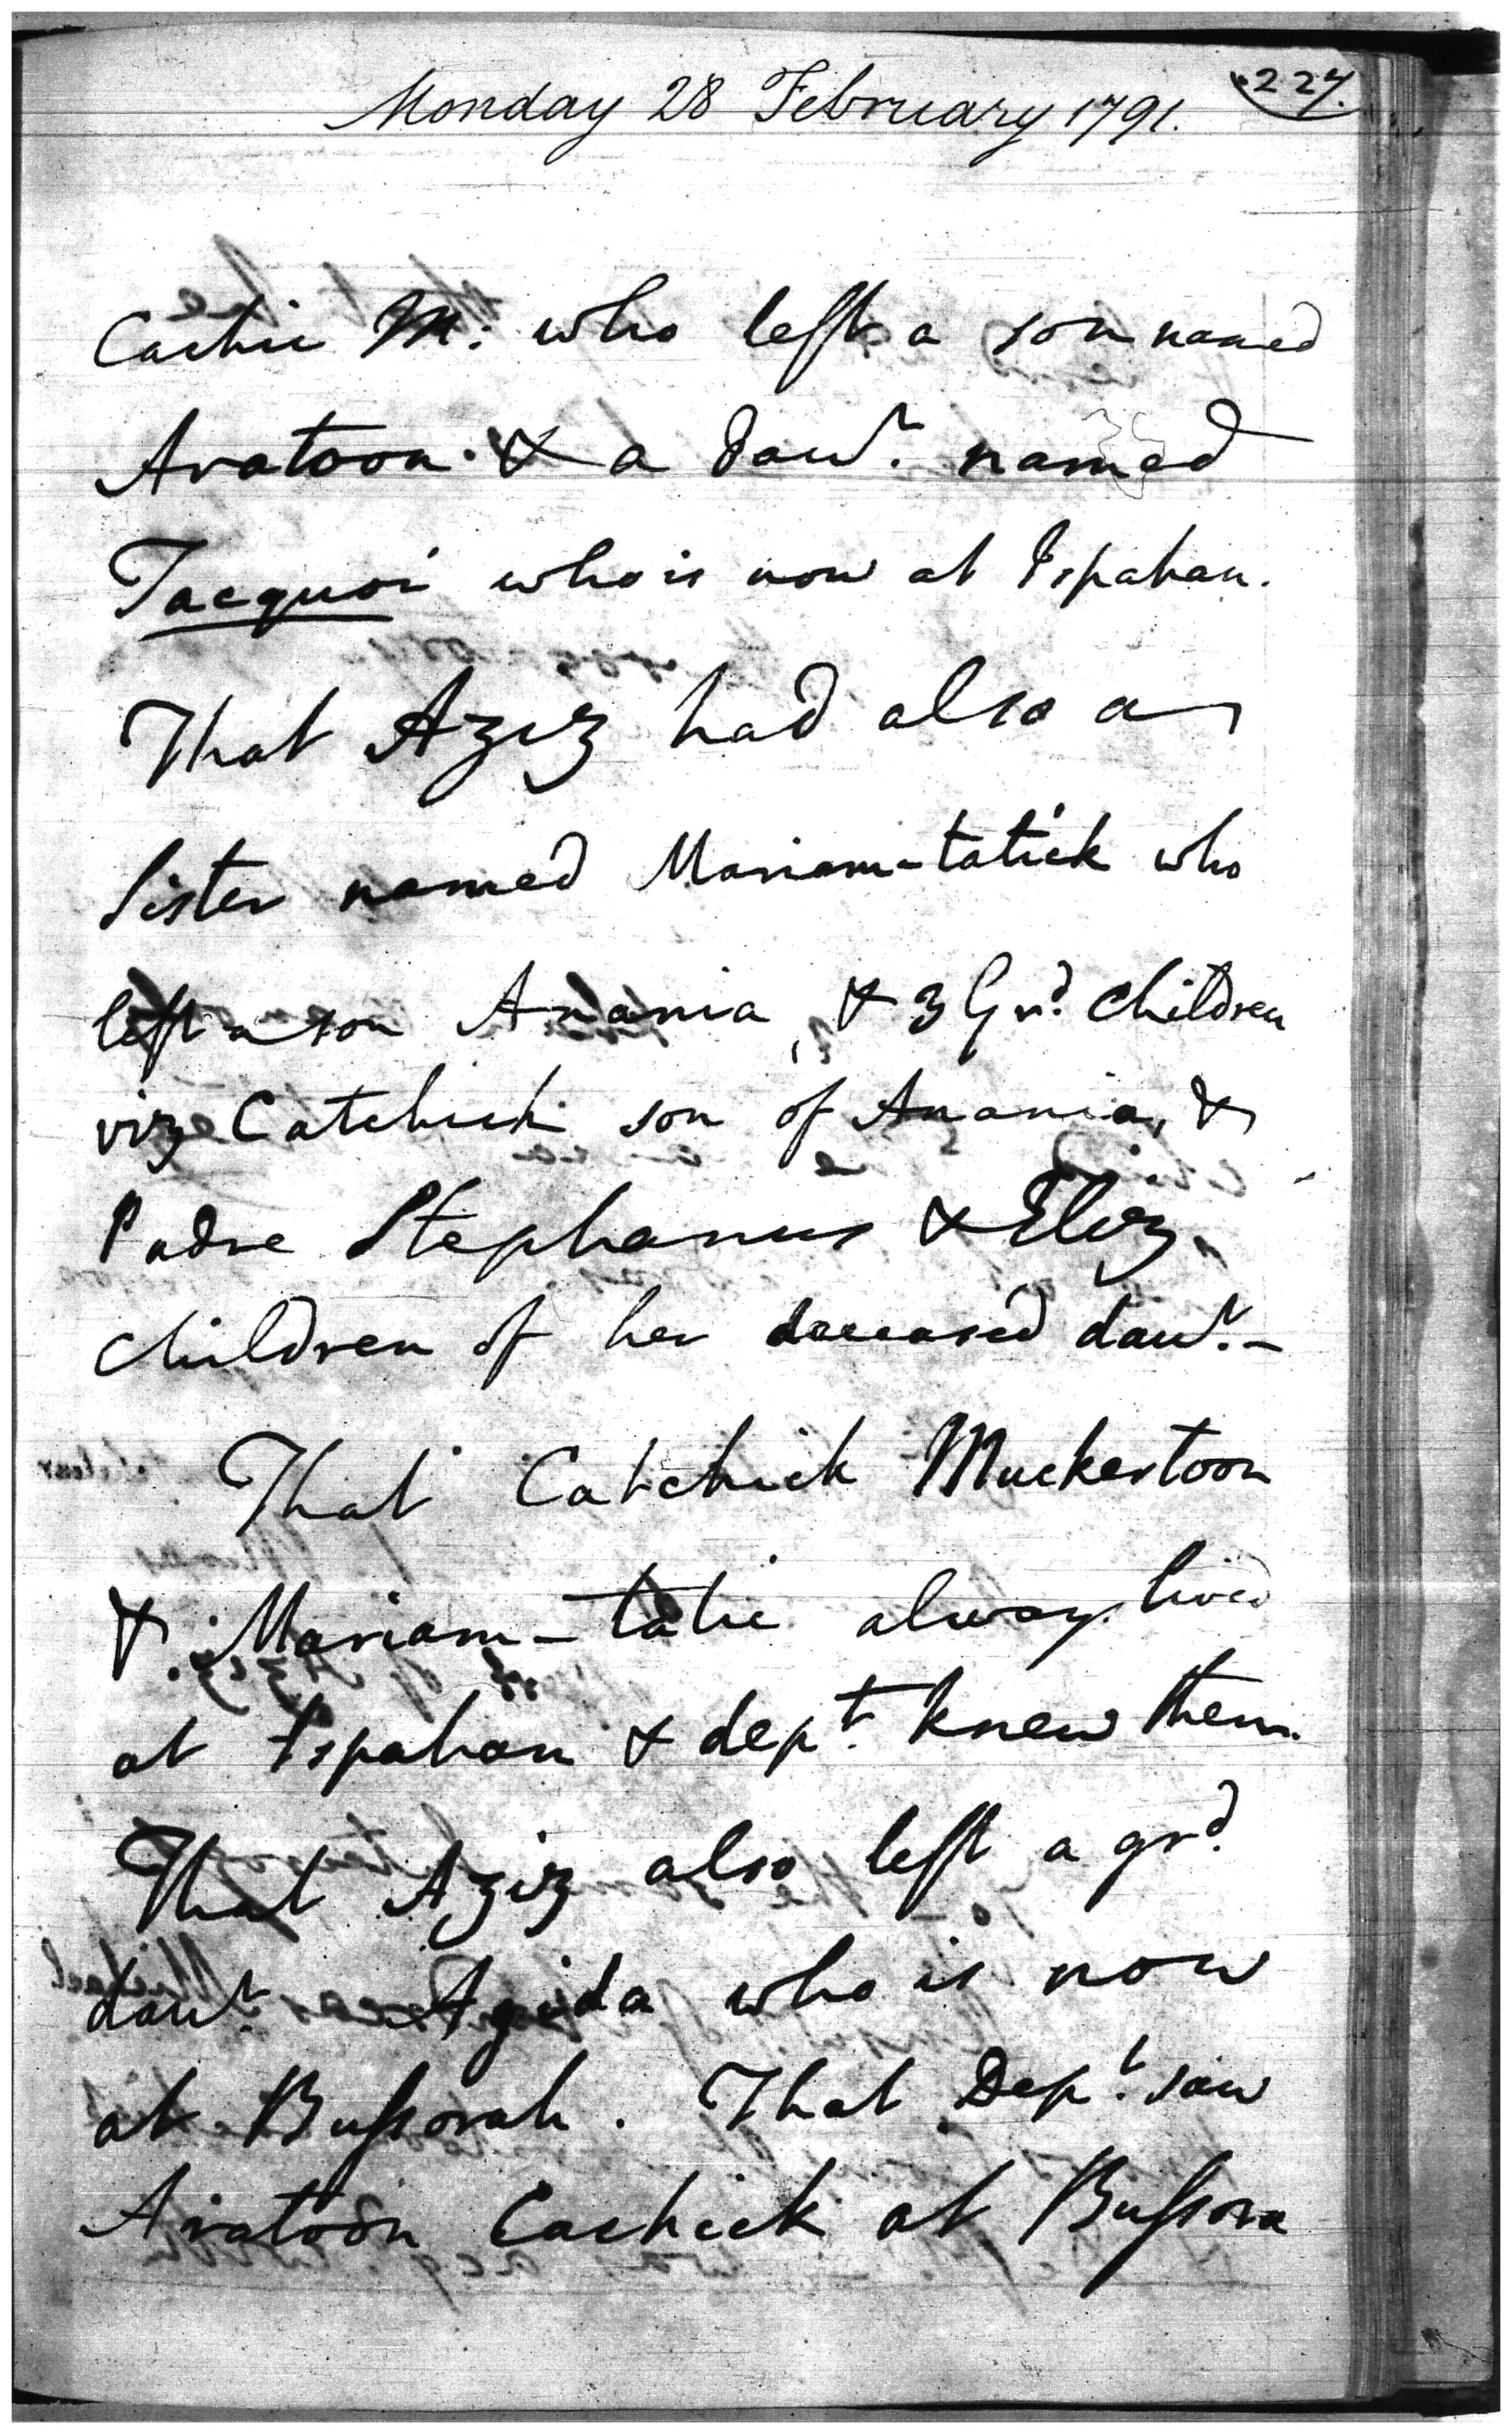 227.
Monday 28 February 1791.
Cachic M: who left a son named
Aratoon & a dau.r named
Tacquoi who is now at Ispahan.
That Aziz had also a
Sister named Mariam-tatick who
left a son Anania, & 3 Grd. children
viz Catchick son of Anania, &
Padre Stephanus & Eliz
children of her deceased dau.r -
That Catchick Muckertoon
& Mariam-tatic always lived
at Ispahan & dep.t knew them.
That Aziz also left a grd.
daur. who is now
at Bussorah. That Dep.t saw
Aratoon Cachick at Bussora